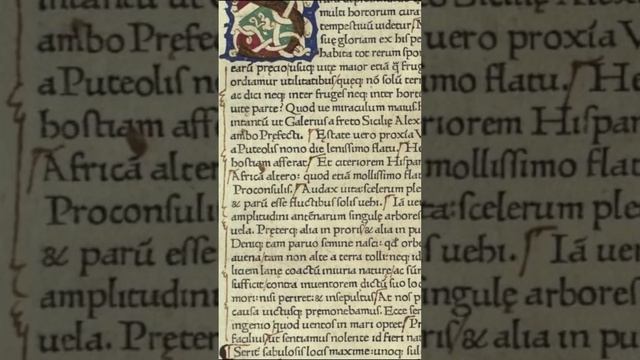 mulꝉ hortorum cura
tempestiuū uidetur
sue gloriam ex his pe
habita tot rerum spon
earū precio/usuq; uite maior etiā q̄ fru
ordiamur utilitatibus/queq; nō solū terra
ac dici neq; inter fruges neq; inter horten
uite parte? Quod ue miraculum maius/h
intantū ut Galerius a freto Sicilię Alex
ambo Prefecti. Estate uero proxīa V
a Puteolis nono die lenissimo flatu. He
hostiam afferat. Et citeriorem Hispan
Africā altero: quod etiā mollissimo flatu
Proconsulis. Audax uita: scelerum ple
& parū esse fluctibus solis uehi. Iā uer
amplitudini antēnarum singulę arbores
uela. Pręterq; alia in proris/& alia in pup
Deniq; tam paruo semine nasci: qđ orbē
auena/tam non alte a terra tolli: neq; id
licem lane coactū iniuria naturę/ac sūm
sufficit/contra inuentorem dictū suo loc
mori: nisi periret: & insepultus/At nos p
causa uictusq; premonebamus. Ecce ser
ingenio quod uentos in mari optet
Facilius/ut sentiamus nolente id fieri natu
Serit̄ sabulosis locis maxime: unoq; sul